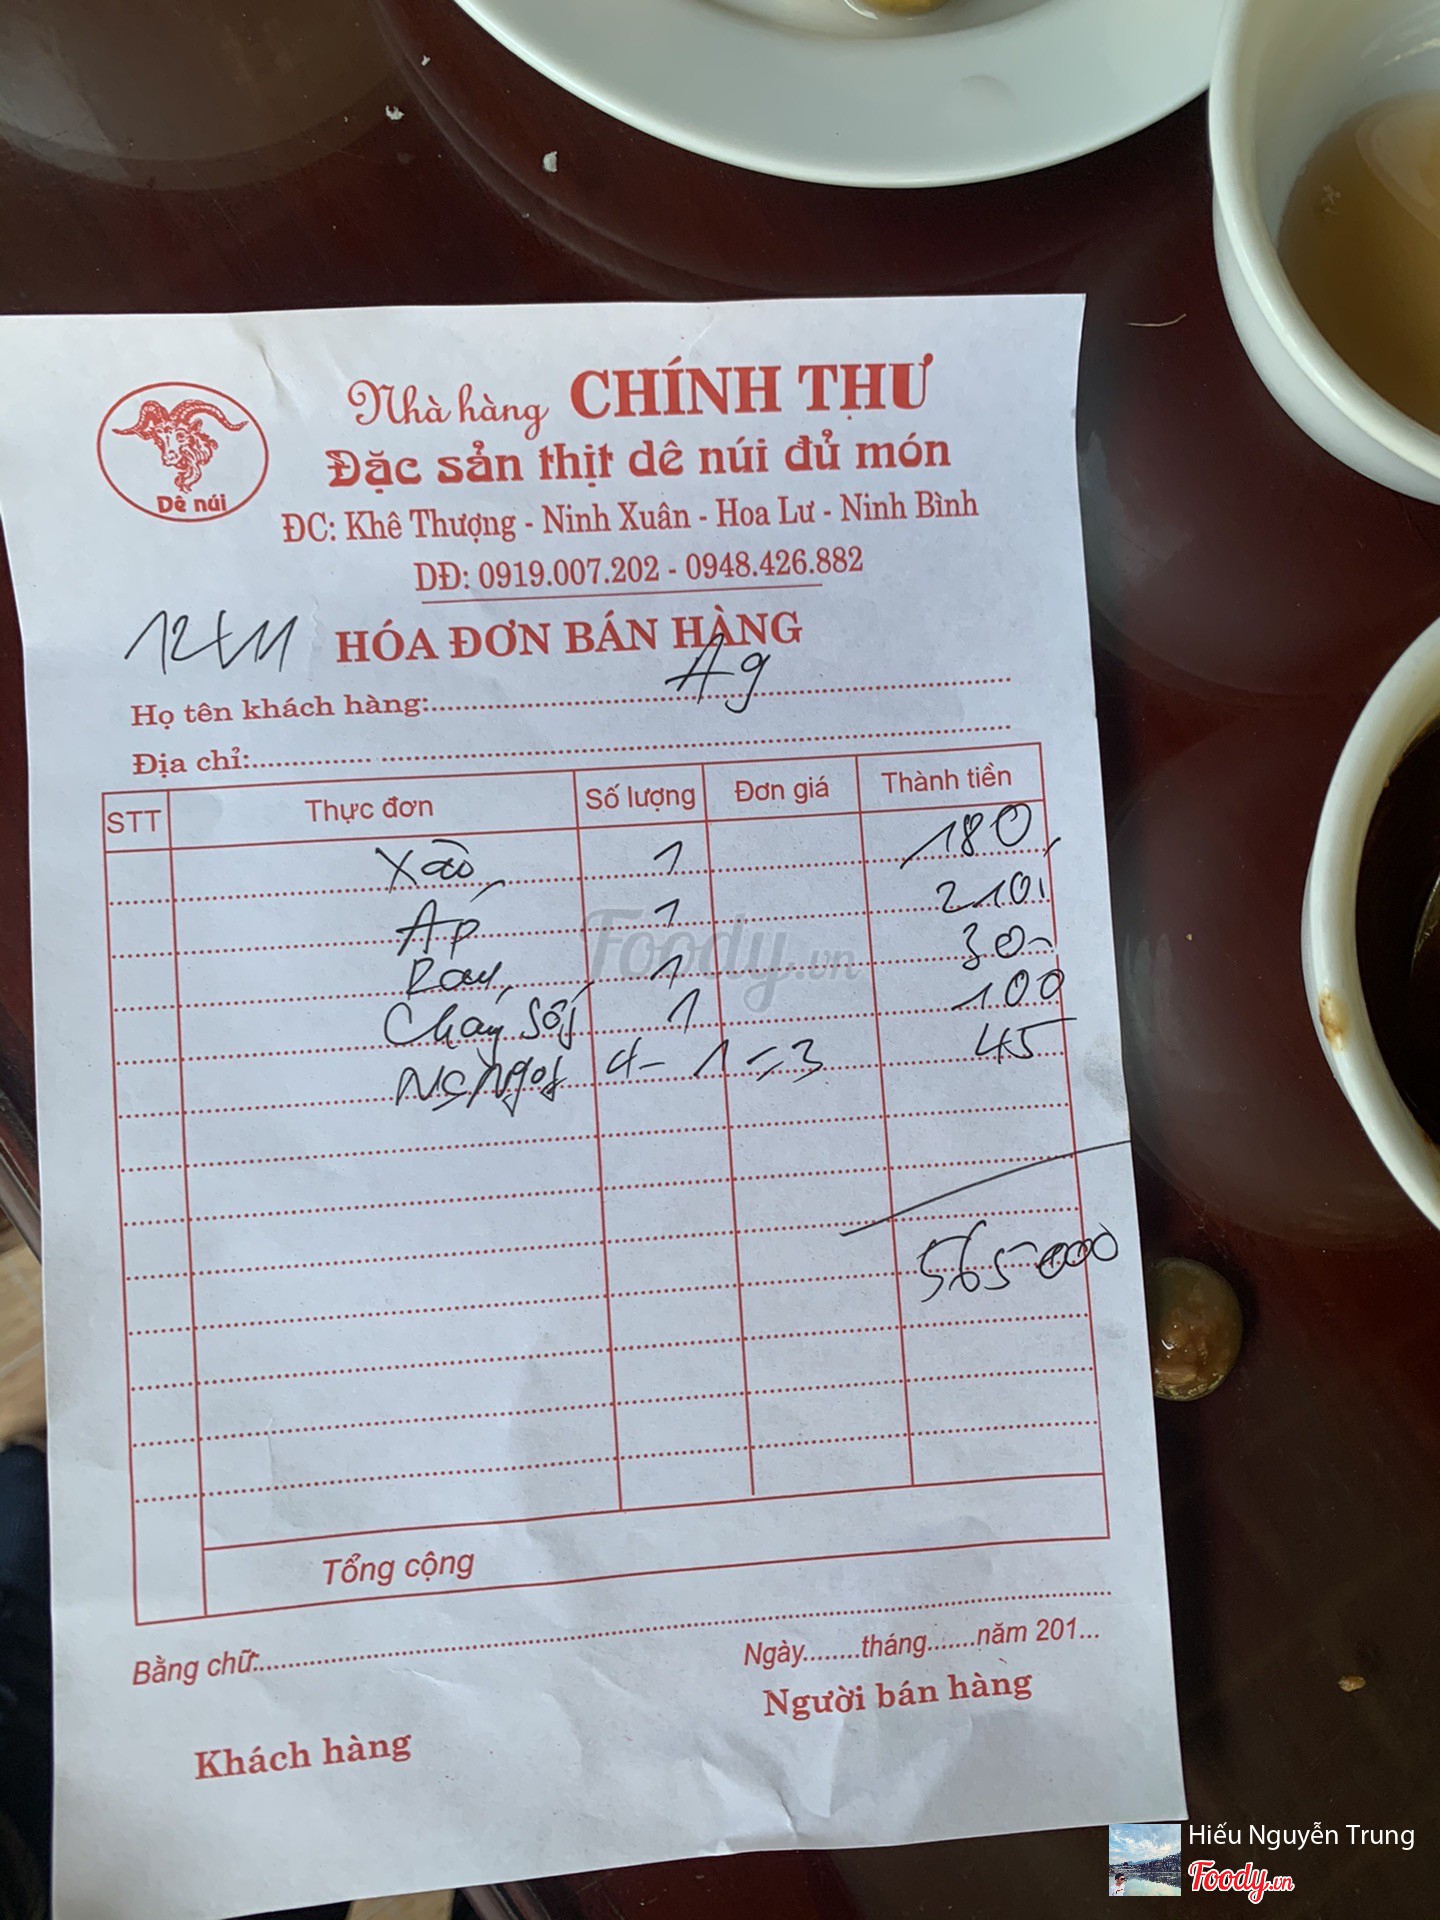 Nhà hàng CHÍNH THƯ
Dê núi
Đặc sản thịt dê núi đủ món
ĐC: Khê Thượng - Ninh Xuân - Hoa Lư - Ninh Bình
DĐ: 0919.007.202 - 0948.426.882
12/11 HÓA ĐƠN BÁN HÀNG
Họ tên khách hàng: A9
Địa chỉ:
STT Thực đơn Số lượng Đơn giá Thành tiền
Xào 1 180
Áp 1 210
Rau 1 30
Cháy sốt 1 100
Ngọt 4-1=3 45
565000
Tổng cộng
Bằng chữ:
Ngày........tháng.......năm 201...
Người bán hàng
Khách hàng
Foody.vn
Hiếu Nguyễn Trung
Foody.vn